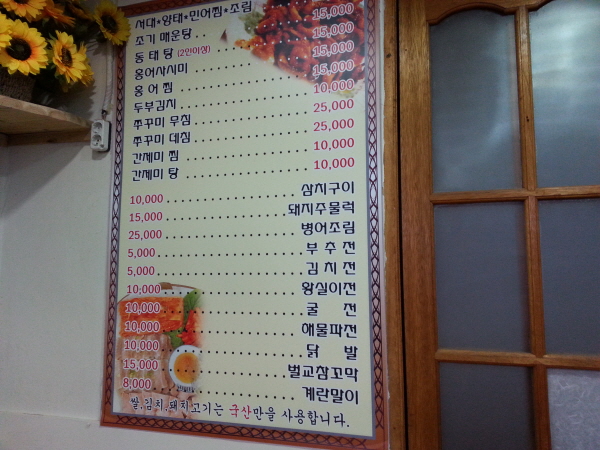 서대*양태*민어찜*조림
조기 매운탕 15,000
동태탕 (2인이상) 15,000
홍어사시미 15,000
홍어찜 15,000
두부김치 10,000
쭈꾸미 무침 25,000
쭈꾸미 데침 25,000
간제미 찜 10,000
간제미 탕 10,000
10,000 삼치구이
15,000 돼지주물럭
25,000 병어조림
5,000 부추전
5,000 김치전
10,000 왕실이전
10,000 굴전
10,000 해물파전
10,000 닭발
15,000 벌교참꼬막
8,000 계란말이
쌀,김치,돼지고기는 국산만을 사용합니다.